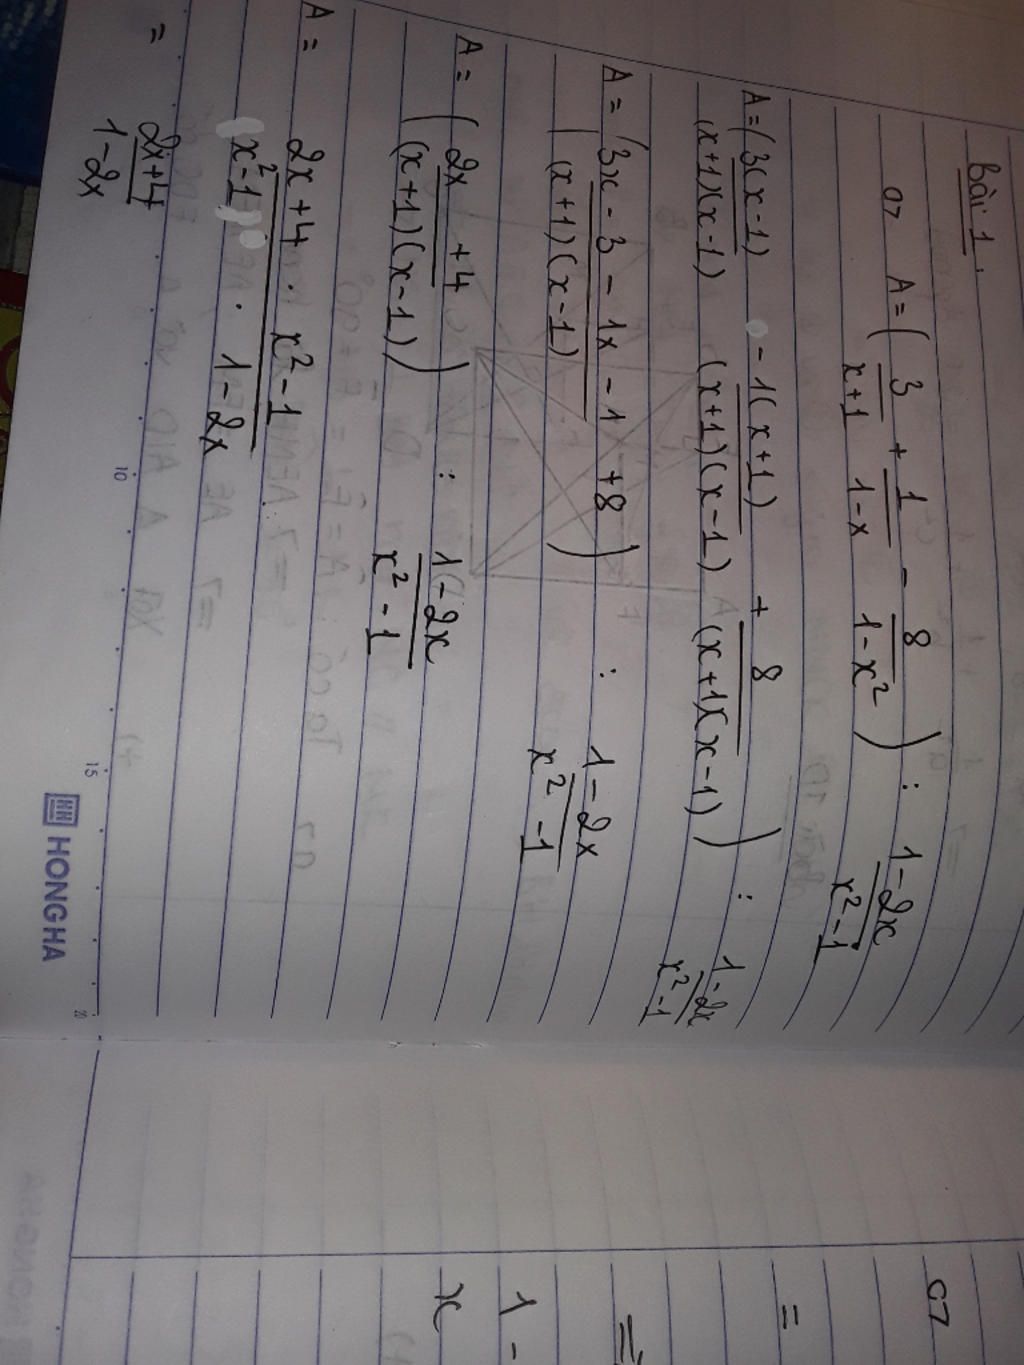 Bài 1.
a, A = ( 3/x+1 + 1/1-x - 8/1-x² ) : 1-2x/x²-1
A = ( 3(x-1)/(x+1)(x-1) - 1(x+1)/(x+1)(x-1) + 8/(x+1)(x-1) ) : 1-2x/x²-1
A = ( 3x-3-1x-1+8/(x+1)(x-1) ) : 1-2x/x²-1
A = ( 2x+4/(x+1)(x-1) ) : 1-2x/x²-1
A = 2x+4 . x²-1/x²-1 . 1-2x
= 2x+4/1-2x
10 15 20
HONGHA
=
=
1 -
x